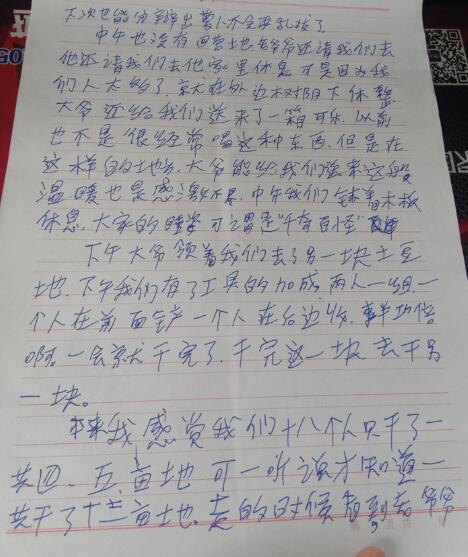 下次也能分辨出萝卜不会再乱拔了。
中午也没有回营地 老爷爷还请我们去
他还请我们去他家里休息 可是因为我
们人太多了, 就在外边树阴下休整
大爷还给我们送来了一箱可乐, 以前
也不是很经常喝这种东西, 但是在
这样的地方, 大爷能给我们送来这般
温暖也是感激不尽. 中午我们铺着木板
休息. 大家的睡姿可谓是"千奇百怪"
下午大爷领着我们去了另一块土豆
地. 下午我们有了工具的加成 两人一组一
个人在前面铲一个人在后边收. 事半功倍
啊. 一会就干完了. 干完这一块去干另
一块。
本来我感觉我们十八个人只干了一
共四、五亩地 可一听说才知道一
共干了十三亩地. 走的时候看到老爷爷
05